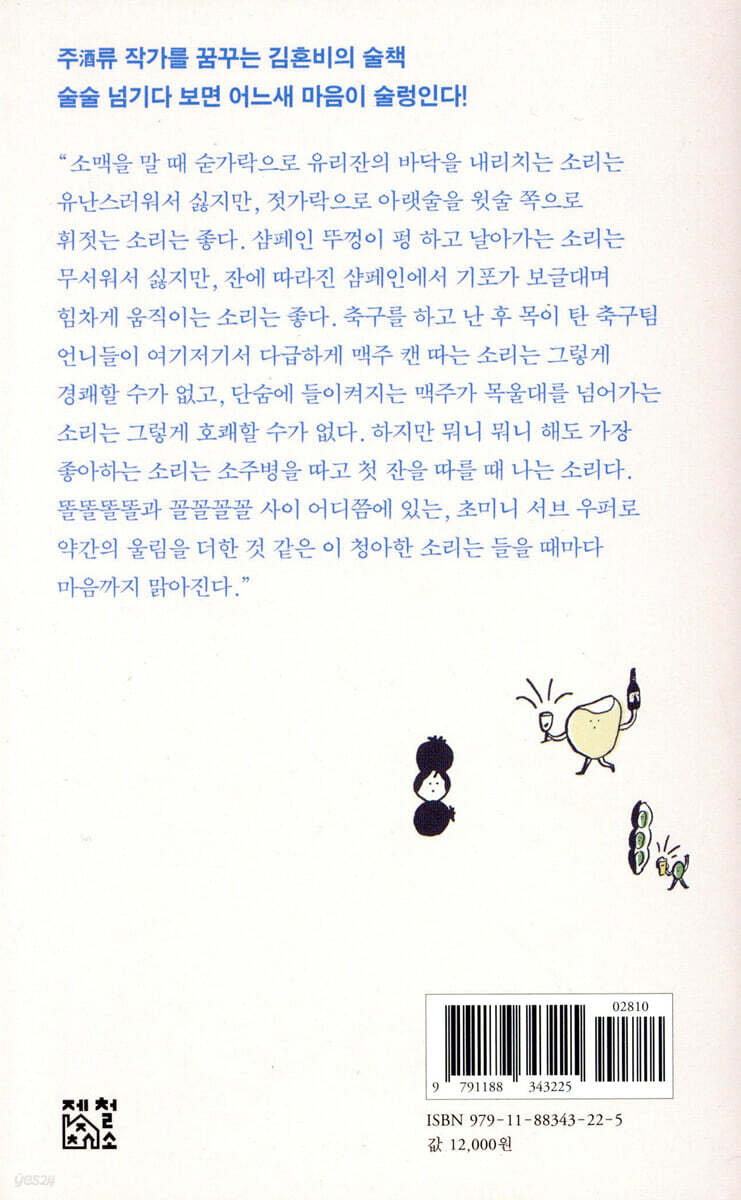 주酒류 작가를 꿈꾸는 김혼비의 술책
술술 넘기다 보면 어느새 마음이 술렁인다!
“소맥을 말 때 숟가락으로 유리잔의 바닥을 내리치는 소리는
유난스러워서 싫지만, 젓가락으로 아랫술을 윗술 쪽으로
휘젓는 소리는 좋다. 샴페인 뚜껑이 펑 하고 날아가는 소리는
무서워서 싫지만, 잔에 따라진 샴페인에서 기포가 보글대며
힘차게 움직이는 소리는 좋다. 축구를 하고 난 후 목이 탄 축구팀
언니들이 여기저기서 다급하게 맥주 캔 따는 소리는 그렇게
경쾌할 수가 없고, 단숨에 들이켜지는 맥주가 목울대를 넘어가는
소리는 그렇게 호쾌할 수가 없다. 하지만 뭐니 뭐니 해도 가장
좋아하는 소리는 소주병을 따고 첫 잔을 따를 때 나는 소리다.
똘똘똘똘과 꼴꼴꼴꼴 사이 어디쯤에 있는, 초미니 서브 우퍼로
약간의 울림을 더한 것 같은 이 청아한 소리는 들을 때마다
마음까지 맑아진다.”
02810
9 791188 343225
ISBN 979-11-88343-22-5
값 12,000원
제철
소
yes24